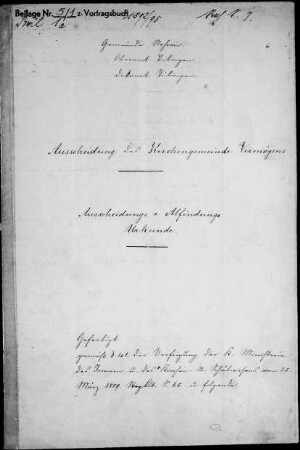 Beilage Nr. 5/1 z. Vortragsbuch 1512/95
Gemeinde Nehren
Oberamt Tübingen
Dekanat Tübingen
Ausscheidung des Kirchengemeinde Vermögens
Ausscheidungs & Abfindungs
Urkunde.
Gefertigt
gemäß § 41 der Verfügung der K. Ministerien
des Innern u. des Kirchen- u. Schulwesens vom 25.
März 1889 Regbl. S. 65 u. folgende